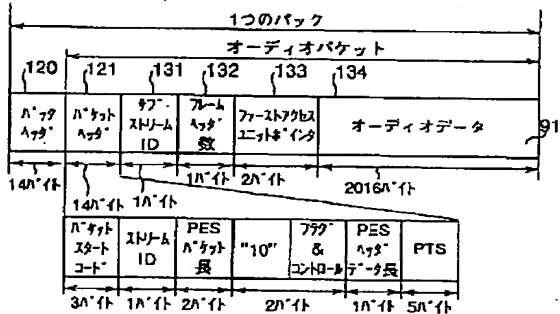 1つのパック
オーディオパケット
120 121 131 132 133 134
パック
ヘッダ
パケット
ヘッダ
サブ・
ストリーム
ID
フレーム
ヘッダ
数
ファーストアクセス
ユニットポインタ
オーディオデータ
91
14バイト
14バイト
1バイト
1バイト
2バイト
2016バイト
パケット
スタート
コード
ストリーム
ID
PES
パケット
長
"10"
フラグ
&
コントロール
PES
ヘッダ
データ長
PTS
3バイト
1バイト
2バイト
2バイト
1バイト
5バイト